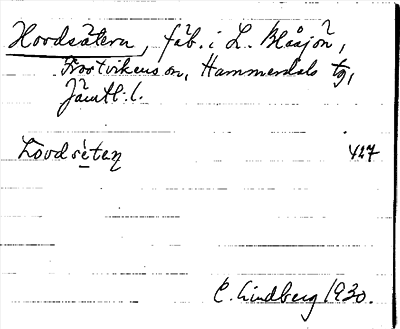 Hovdsätern, fäb. i L. Blåsjön,
Frostvikens sn, Hammerdals tg,
Jämtl:s l.
Lovdsèten 427
C. Lindberg 1930.